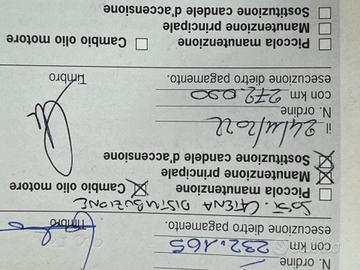 N. ordine
con km 232.165
esecuzione dietro pagamento.
Timbro
SOST. CATENA DISTRIBUZIONE
Piccola manutenzione Cambio olio motore
Manutenzione principale
Sostituzione candele d'accensione
il
N. ordine
con km 272.090
esecuzione dietro pagamento.
Timbro
Piccola manutenzione Cambio olio motore
Manutenzione principale
Sostituzione candele d'accensione